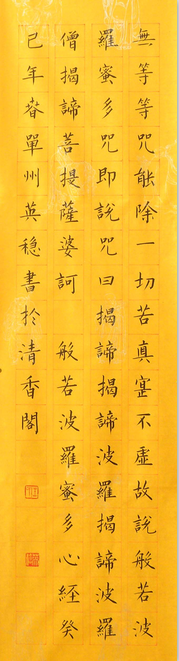 無等等咒能除一切若真寔不虛故說般若波
羅蜜多咒即說咒曰揭諦揭諦波羅揭諦波羅
僧揭諦菩提薩婆訶 般若波羅蜜多心經癸
巳年春單州英穩書於清香閣